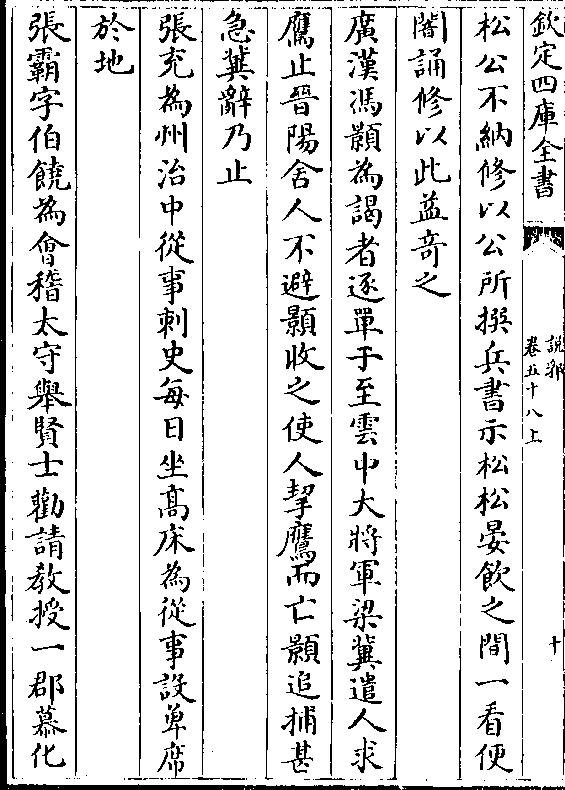 欽定四庫全書
説郛
卷五十八上
十
松公不納修以公所撰兵書示松松宴飲之間一看便
闇誦修以此益竒之
廣漢馮顥為謁者逐單于至雲中大將軍梁冀遣人求
鷹止晉陽舍人不避顥收之使人挈鷹而亡顥追捕甚
急冀辭乃止
張充為州治中從事刺史每日坐髙床為從事設單席
於地
張霸字伯饒為㑹稽太守舉賢士勸請教授一郡慕化